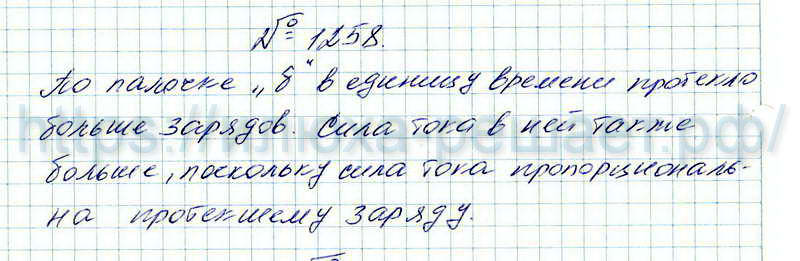 № 1258.
По палочке „б" в единицу времени протекло
больше зарядов. Сила тока в ней также
больше, поскольку сила тока пропорциональ-
на протекшему заряду.